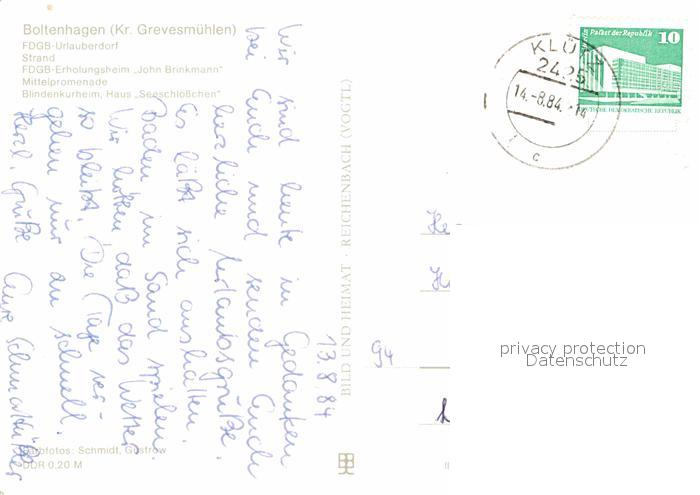 Boltenhagen (Kr. Grevesmühlen)
FDGB-Urlauberdorf
Strand
FDGB-Erholungsheim „John Brinkmann"
Mittelpromenade
Blindenkurheim, Haus „Seeschlößchen"
13.8.84
Wir sind heute in Gedanken
bei Euch und senden Euch
herzliche Urlaubsgrüße.
Es läßt sich aushalten.
Baden im Sand spielen.
Wir hoffen daß das Wetter
so bleibt. Die Tage ver-
gehen nur zu schnell.
Herzl. Grüße
Farbfotos: Schmidt, Güstrow
DDR 0,20 M
BILD UND HEIMAT · REICHENBACH (VOGTL)
KLÜTZ
2425
14.-8.84.-14
c
Berlin Palast der Republik
10
DEUTSCHE DEMOKRATISCHE REPUBLIK
He
H
94
privacy protection
Datenschutz